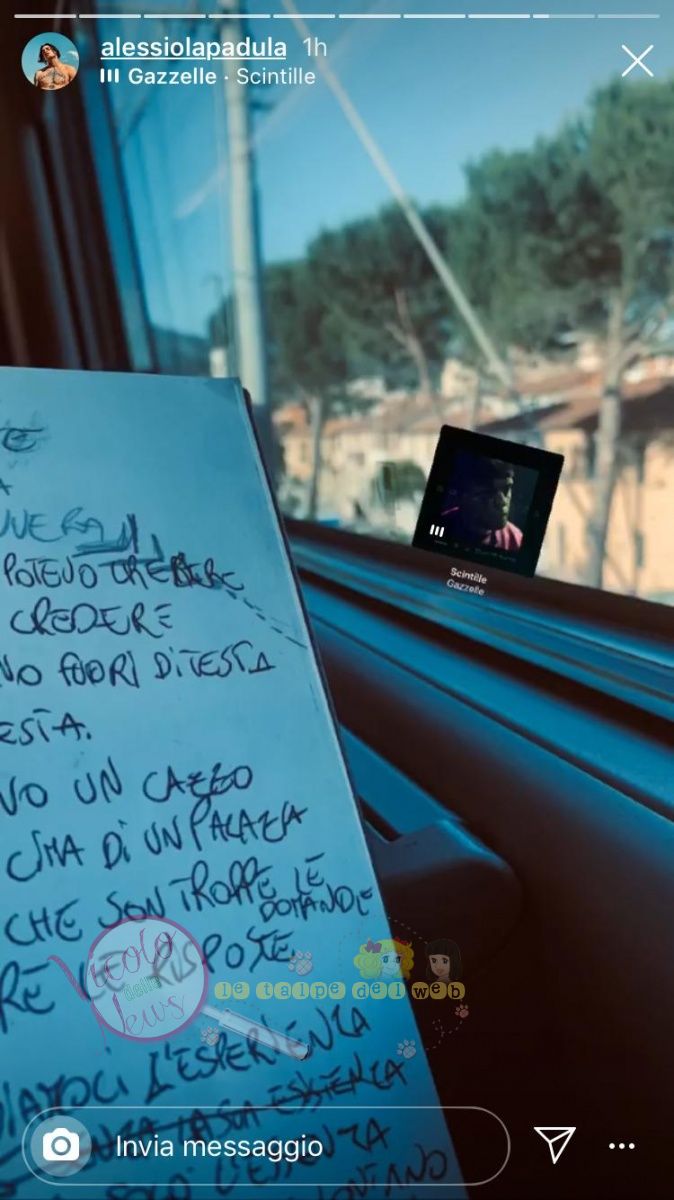 alessiolapadula 1h
Gazzelle · Scintille
Scintille
Gazzelle
E
A
POTEVO CREDERE
CREDERE
NO FUORI DI TESTA
ESTA.
VO UN CAZZO
CIMA DI UN PALAZZO
CHE SON TROPPE LE
DOMANDE
RE LE RISPOSTE.
Vicolo
delle
News
le talpe del web
L'ESPERIENZA
L'ESSENZA
Invia messaggio